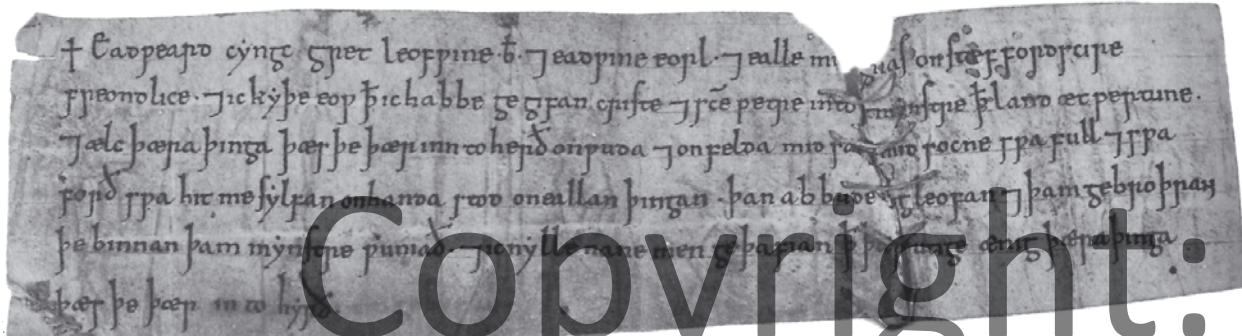 ✝ Eadƿeard cyngc gret leofƿine b̄. ⁊ eadƿine eorl. ⁊ ealle mi gnas on stæffordscire
freondlice. ⁊ ic kyþe eoƿ ꝥ ic habbe gegifan criste ⁊ sc̄e petre into ꝥ land æt pertune.
⁊ ælc þæra þinga þæs þe þær inn to herð on ƿuda ⁊ on felda mid mid socne sƿa full ⁊ sƿa
forð sƿa hit me sylfan on handa stod on eallan þingan. þan abbude leofan ⁊ þam gebroþran
þe binnan þam mynstre ƿuniað. ⁊ ic nylle nane men geþafian ꝥ ænig þæra þinga
þæs þe þær in to hyrð
Copyright: